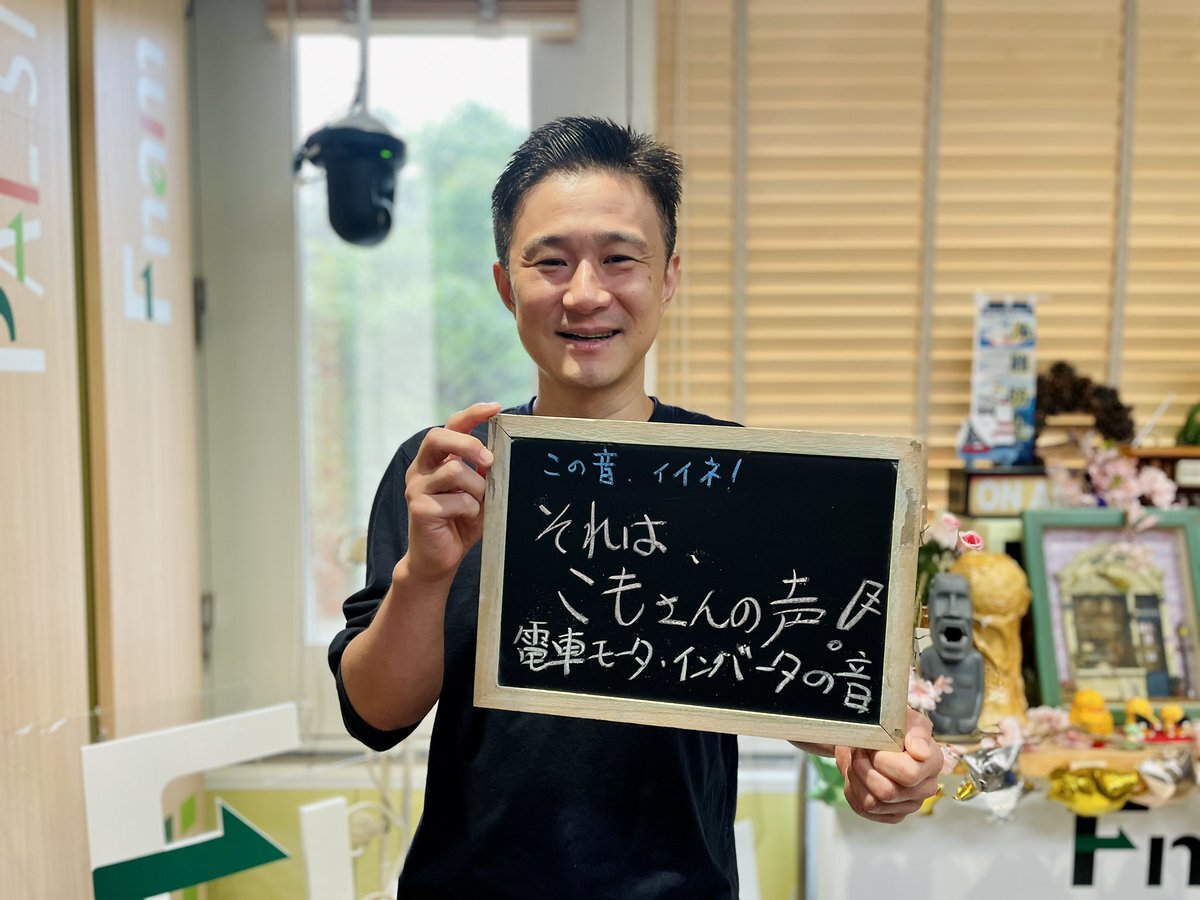 この音、イイネ!
それは、
こもさんの声。
電車モータ・インバータの音
PALSI
Fnam
ON A
Fn